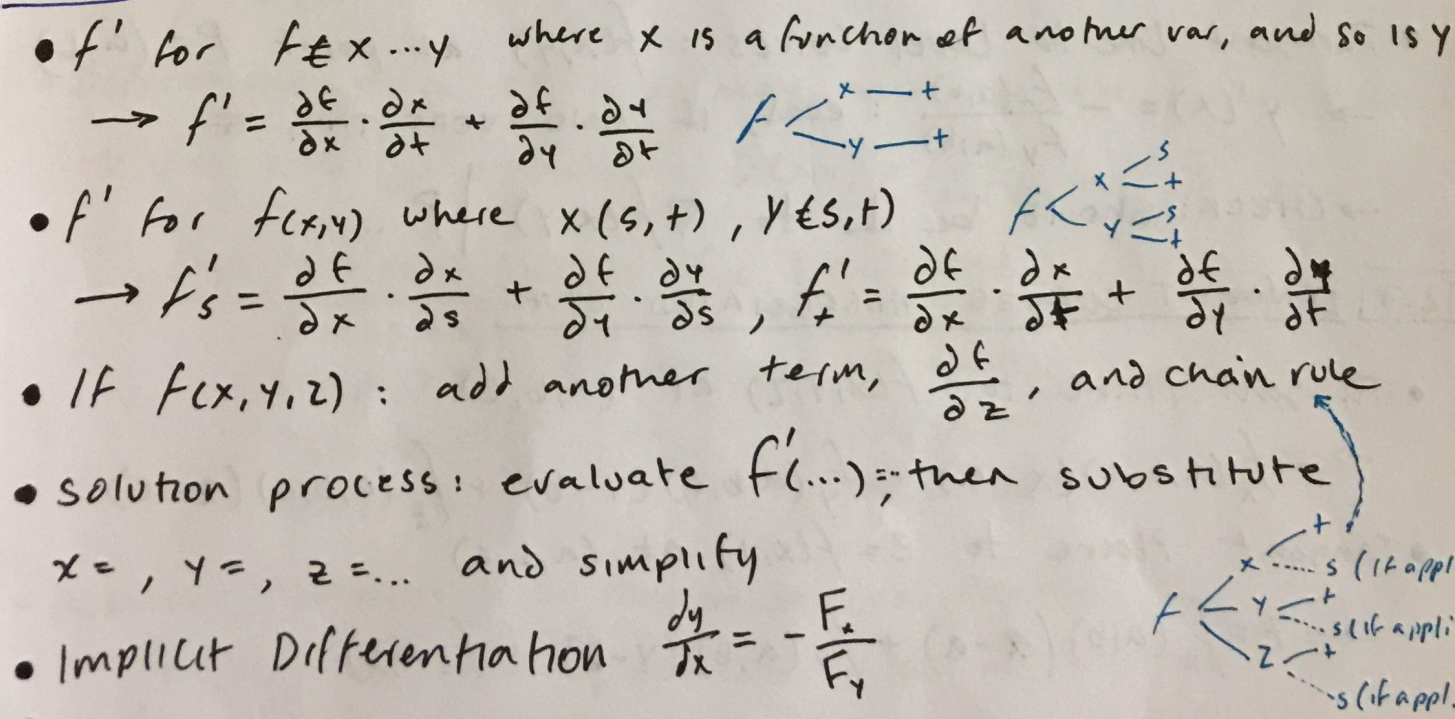 • f' for f∈x...y where x is a function of another var, and so is y
→ f' = ∂f/∂x · ∂x/∂t + ∂f/∂y · ∂y/∂t f x t y t
• f' for f(x,y) where x(s,t), y∈s,t) f x s t y s t
→ f's = ∂f/∂x · ∂x/∂s + ∂f/∂y · ∂y/∂s, f't = ∂f/∂x · ∂x/∂t + ∂f/∂y · ∂y/∂t
• If f(x,y,z): add another term, ∂f/∂z, and chain rule
• solution process: evaluate f'(...)=; then substitute
x = , y = , z = ... and simplify
• Implicit Differentiation dy/dx = - Fx/Fy
f x t s (if appl
y t s (if appli
z t s (if appl